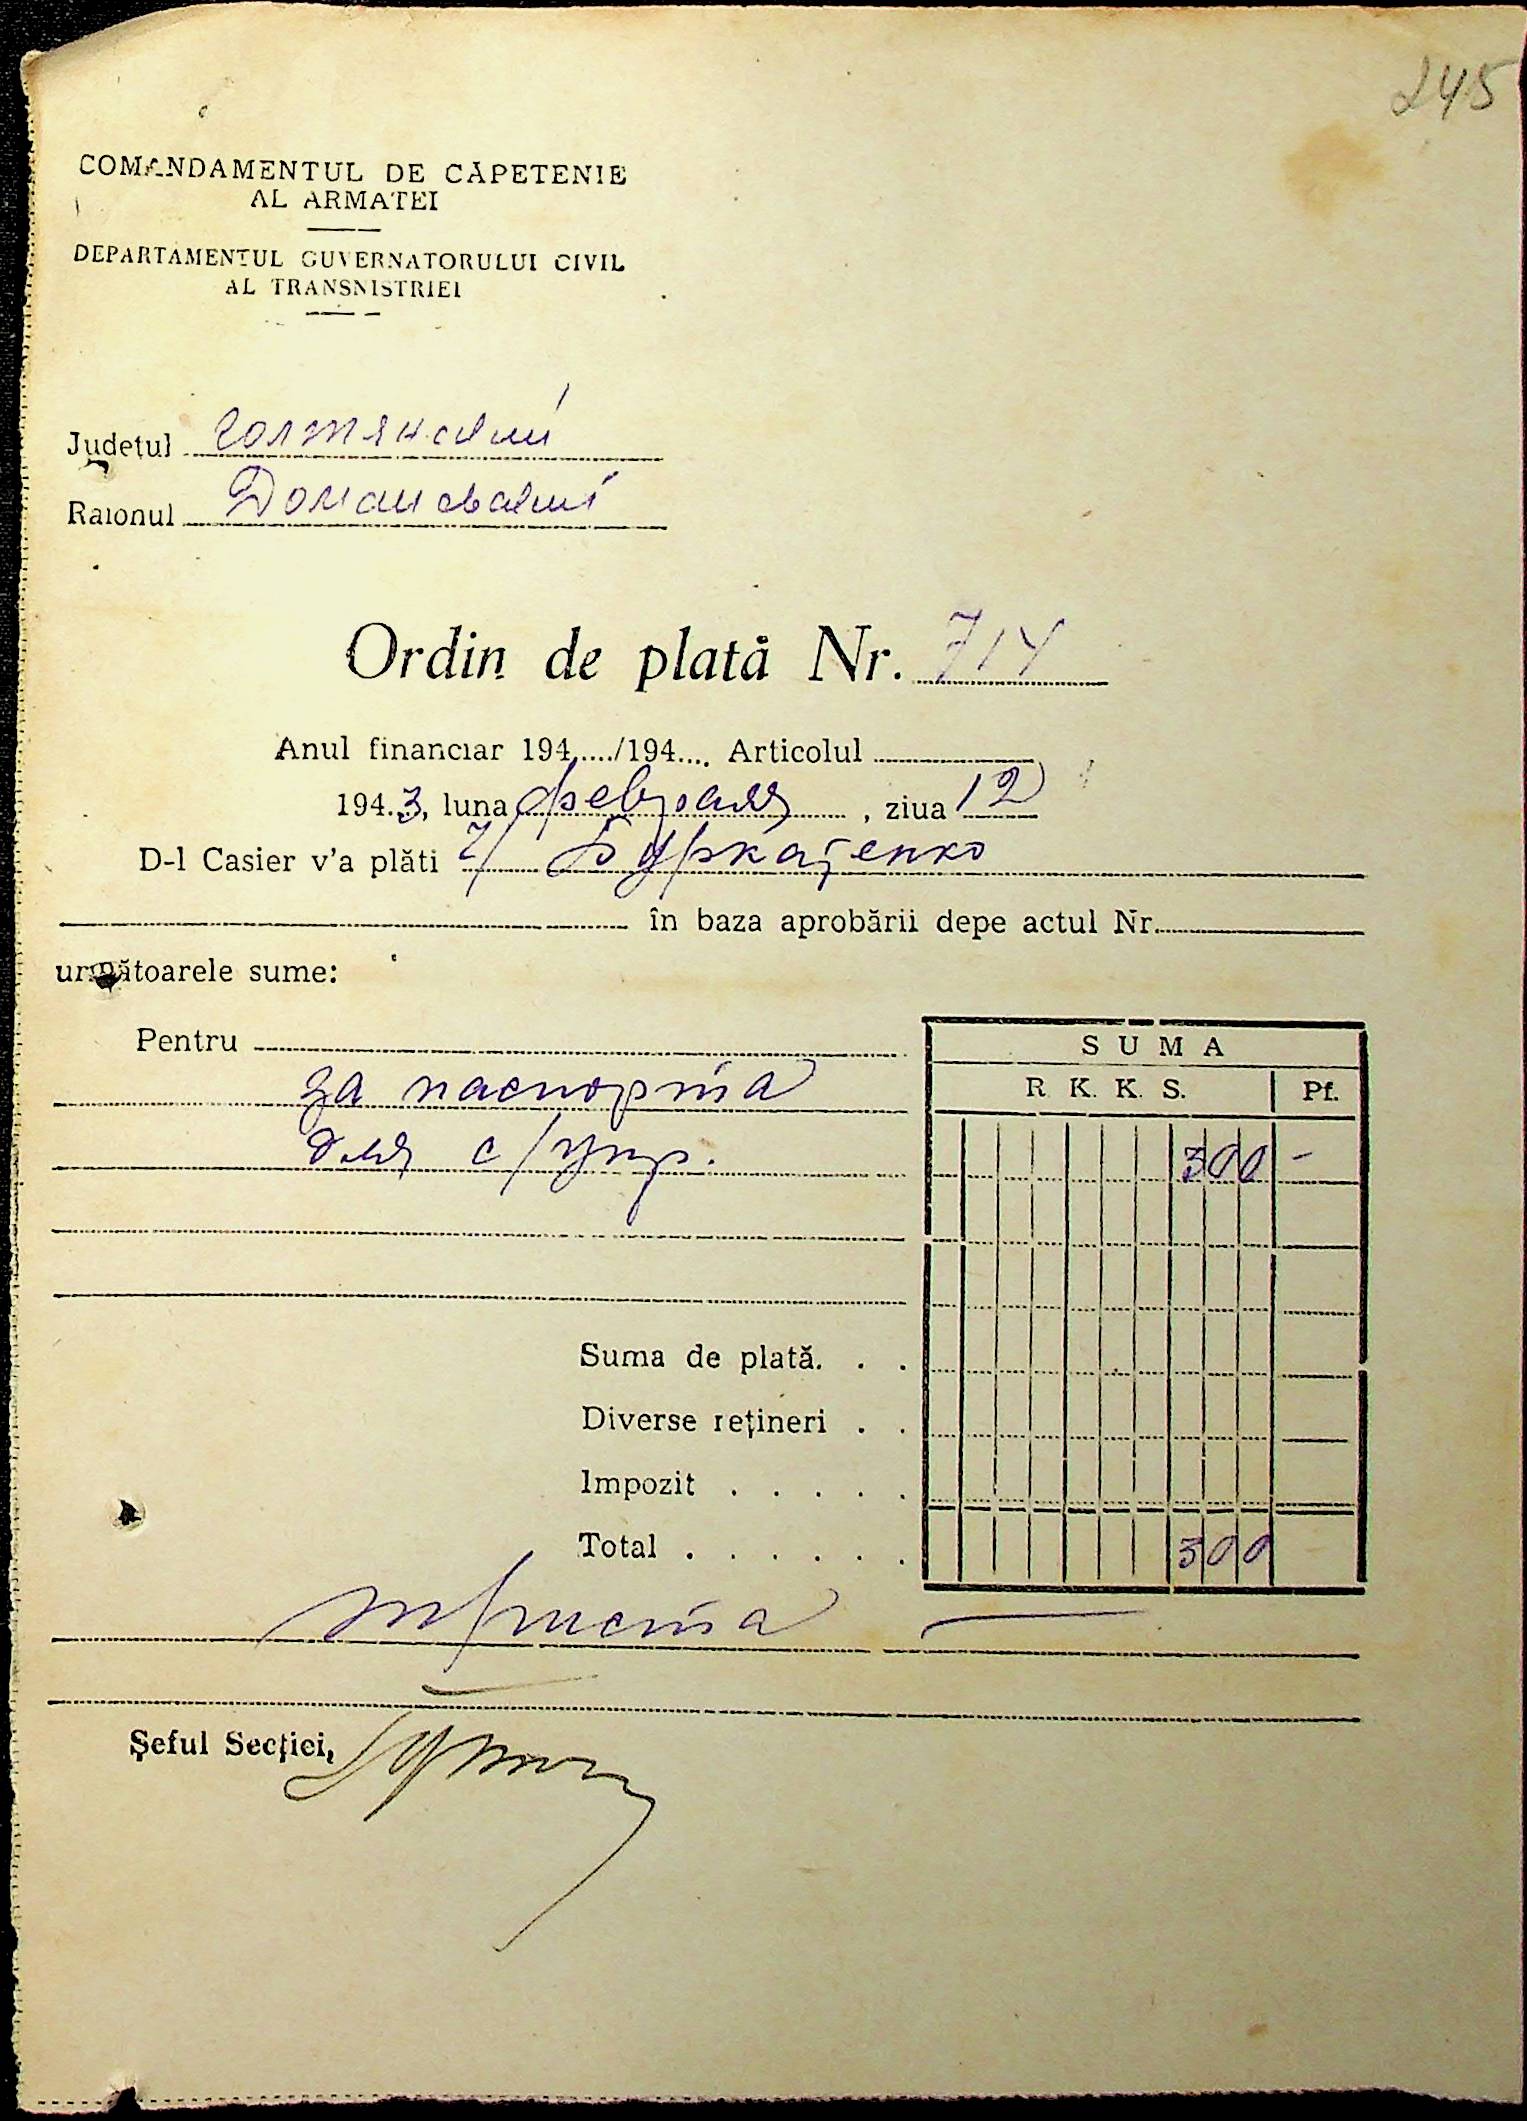 245
COMANDAMENTUL DE CĂPETENIE
AL ARMATEI
DEPARTAMENTUL GUVERNATORULUI CIVIL
AL TRANSNISTRIEI
Judeţul Голтянский
Raionul Доманевский
Ordin de plată Nr. 714
Anul financiar 194..../194.... Articolul
194.3, luna февраля, ziua 12
D-l Casier v'a plăti Буркатенко
în baza aprobării depe actul Nr.
următoarele sume:
Pentru
за паспорта
для с/упр.
SUMA
R. K. K. S. Pf.
300 -
Suma de plată. . .
Diverse reţineri . .
Impozit . . . . .
Total . . . . . . 300
триста
Şeful Secţiei,